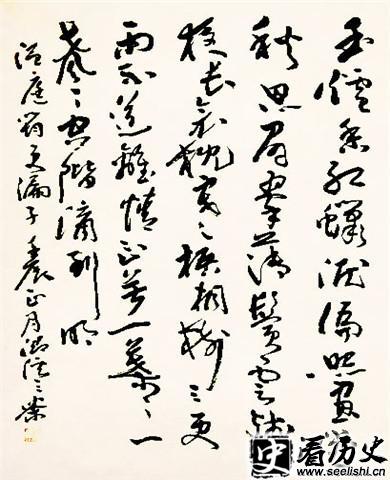 玉爐香紅蠟淚偏照畫
秋思眉翠薄鬢雲殘
夜長衾枕寒梧桐樹三更
雨不道離情正苦一葉〻一
聲〻空階滴到明
溫庭筠更漏子 正月
史 看历史
www.seelishi.cn